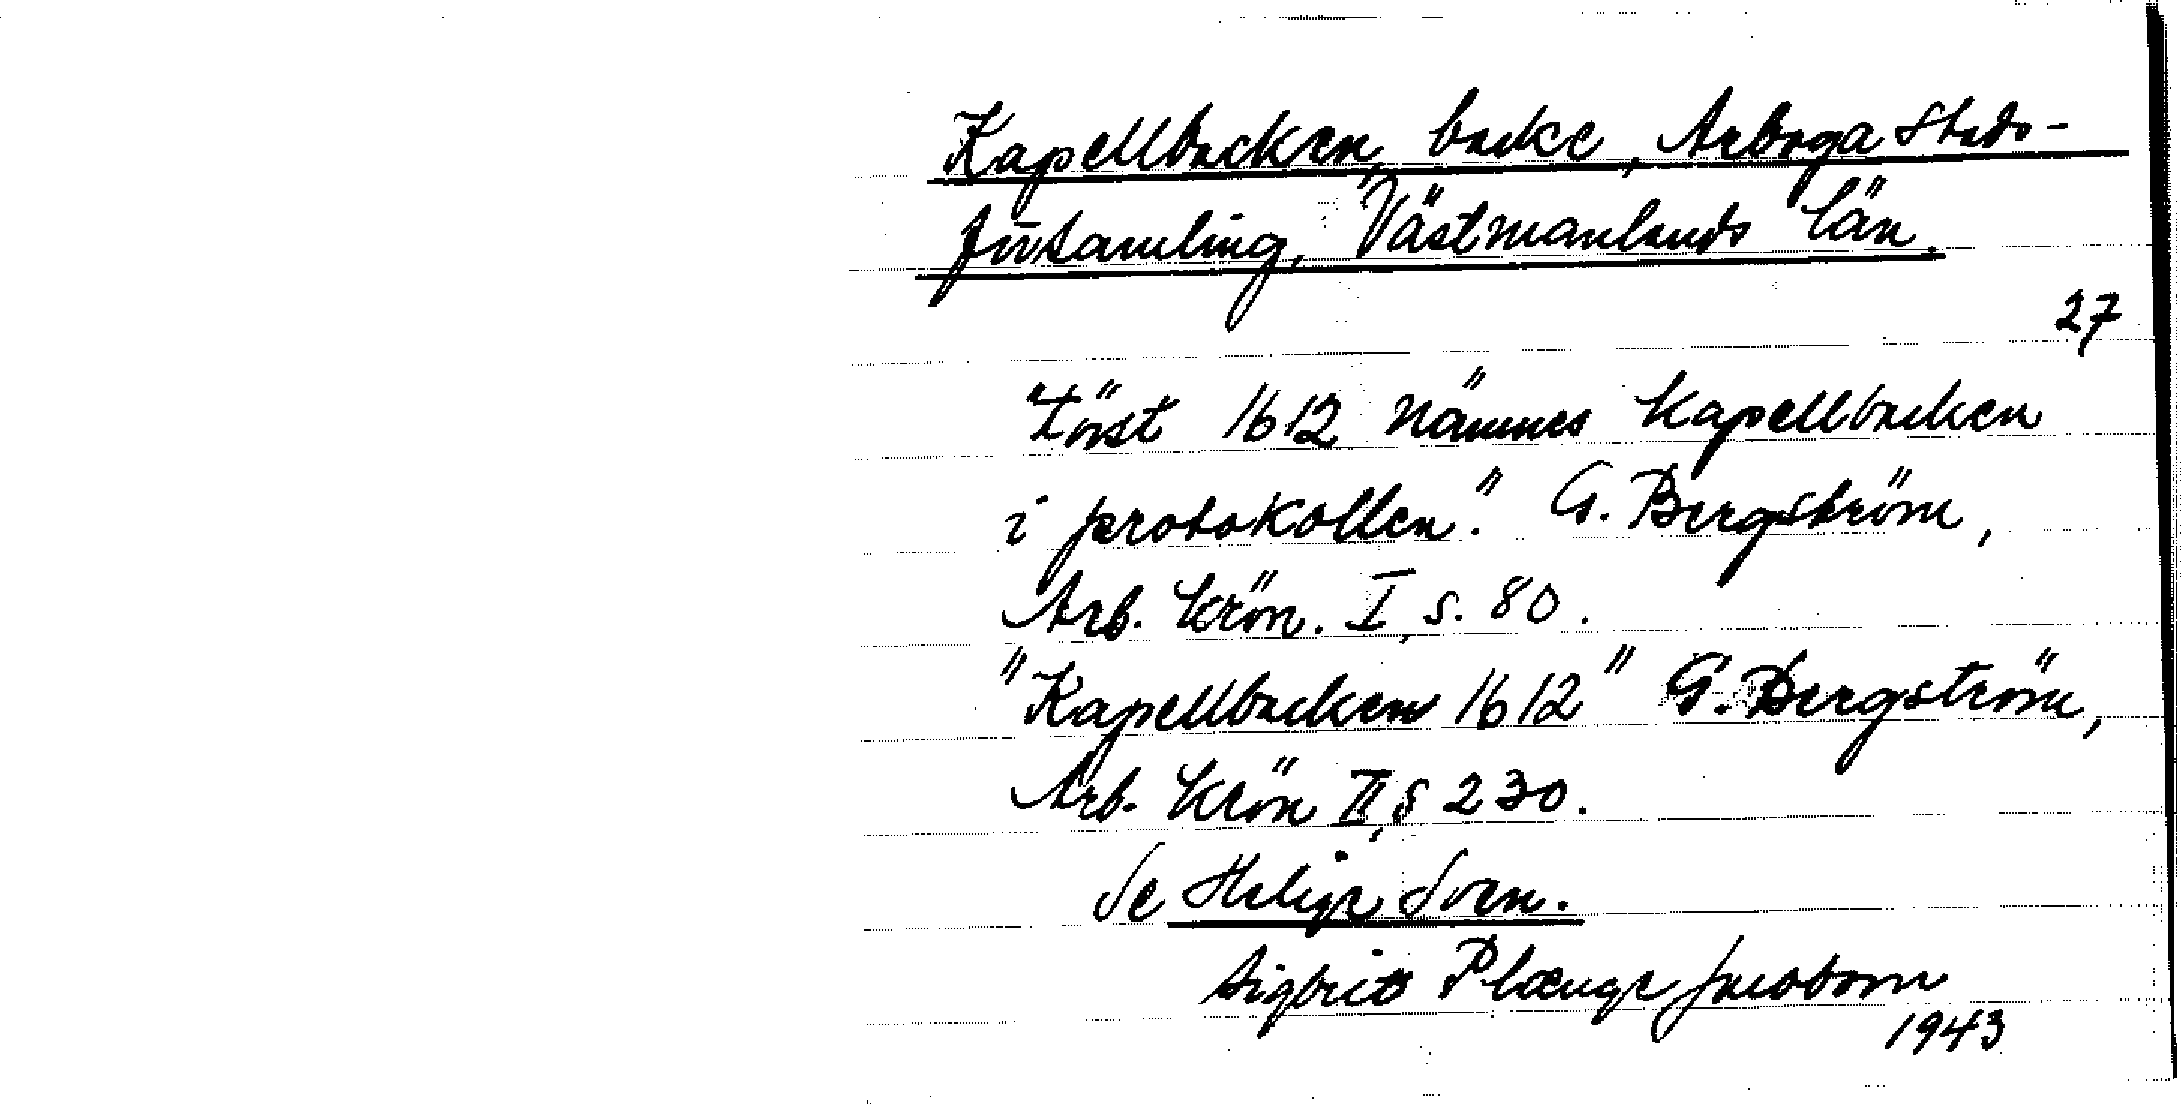 Kapellbacken, backe, Arboga Stads-
församling, Västmanlands län.
27
"Först 1612 nämnes Kapellbacken
i protokollen." G. Bergström,
Arb. Krön. I, s. 80.
"Kapellbacken 1612" G. Bergström,
Arb. Krön II, s 230.
Se Helige Sven.
Sigbrit Plænge Jacobson
1943